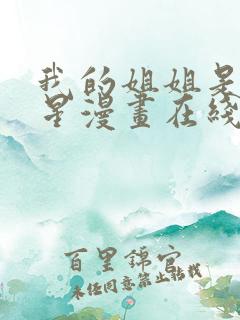 我的姐姐是
星漫畫在綫
百里錦官
未经同意禁止转载